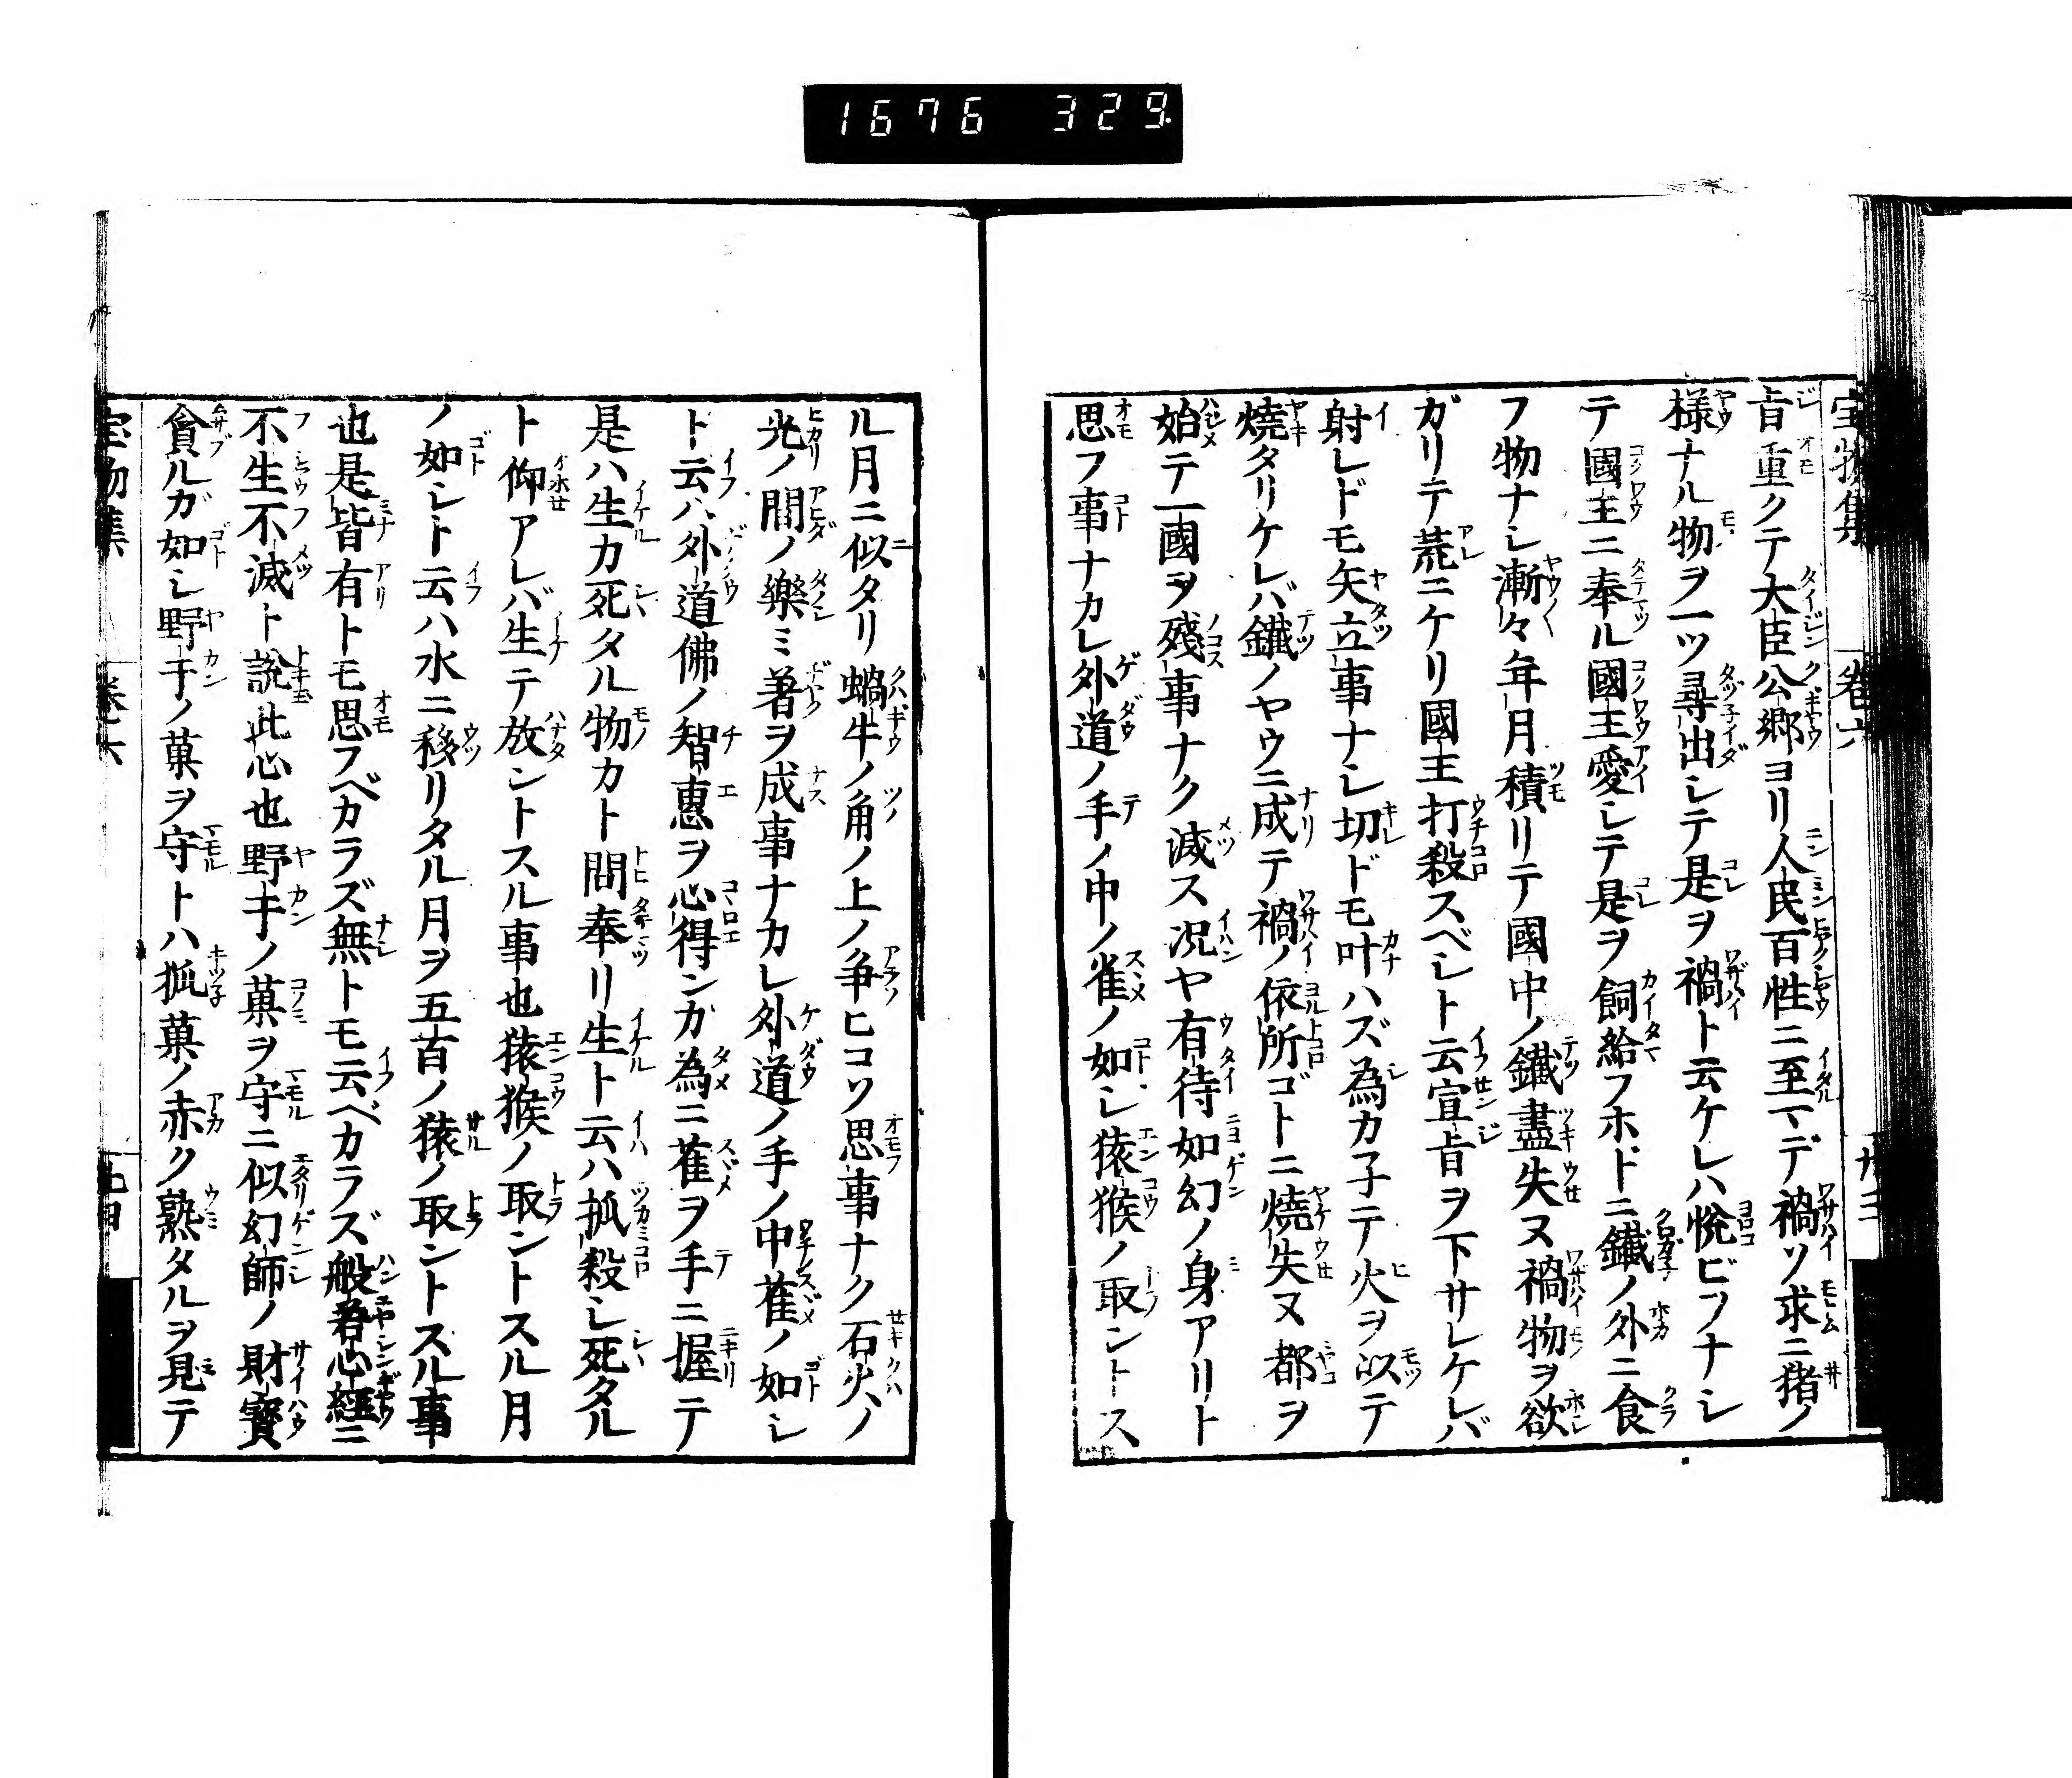 1676 329
宝物集 巻六
旨重クテ大臣公卿ヨリ人民百性ニ至マデ禍ソ求ニ猪ノ
様ナル物ヲ一ツ尋出シテ是ヲ禍ト云ケレハ悦ビヲナシ
テ國王ニ奉ル國王愛シテ是ヲ飼給フホドニ鐵ノ外ニ食
フ物ナシ漸々年月積リテ國中ノ鐵盡失ヌ禍物ヲ欲
ガリテ荒ニケリ國王打殺スベシト云宣旨ヲ下サレケレバ
射レドモ矢立事ナシ切ドモ叶ハズ為カ子テ火ヲ以テ
燒タリケレバ鐵ノヤウニ成テ禍ノ依所ゴトニ燒失ヌ都ヲ
始テ一國ヲ殘事ナク滅ス況ヤ有待如幻ノ身アリト
思フ事ナカレ外道ノ手ノ中ノ雀ノ如シ猿猴ノ取ントス
ル月ニ似タリ蝸牛ノ角ノ上ノ争ヒコソ思事ナク石火ノ
光ノ間ノ樂ミ著ヲ成事ナカレ外道ノ手ノ中雀ノ如シ
ト云ハ外道佛ノ智惠ヲ心得ンカ為ニ雀ヲ手ニ握テ
是ハ生カ死タル物カト問奉リ生ト云ハ抓殺シ死タル
ト仰アレバ生テ放ントスル事也猿猴ノ取ントスル月
ノ如シト云ハ水ニ移リタル月ヲ五百ノ猿ノ取ントスル事
也是皆有トモ思フベカラズ無トモ云ベカラズ般若心經ニ
不生不滅ト説此心也野干ノ菓ヲ守ニ似幻師ノ財寳
貪ルガ如シ野干ノ菓ヲ守トハ狐菓ノ赤ク熟タルヲ見テ
宝物集 巻六